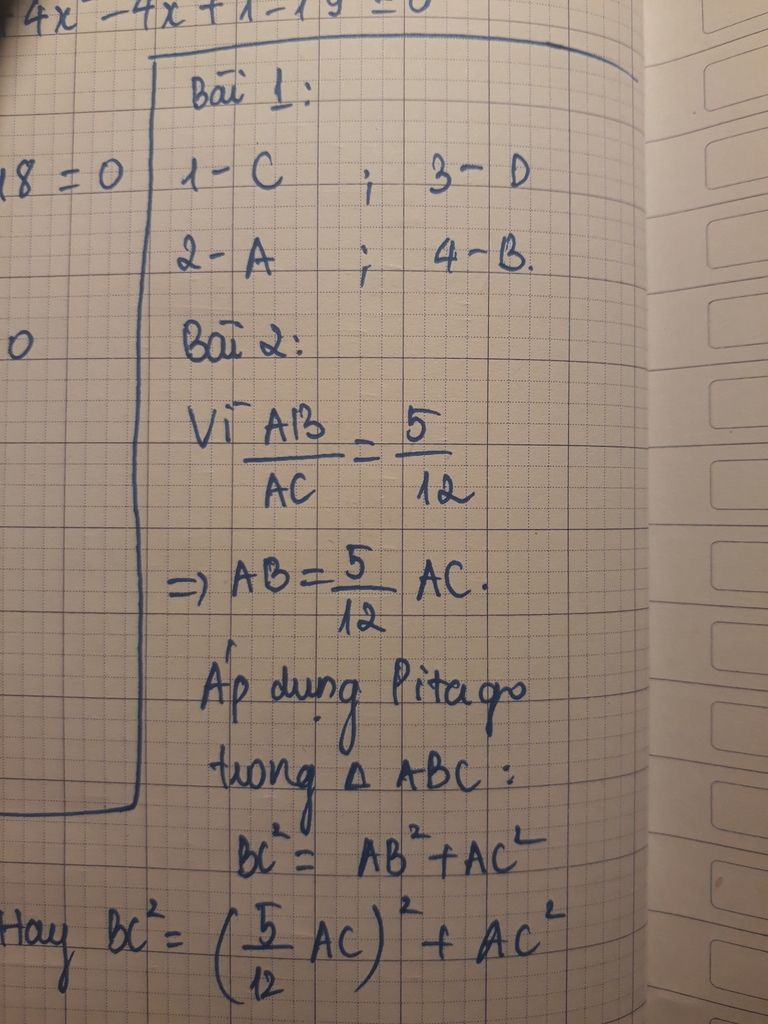 4x² - 4x + 1 - 19 = 0
18 = 0
0
Bài 1:
1 - C ; 3 - D
2 - A ; 4 - B.
Bài 2:
Vì AB/AC = 5/12
=> AB = 5/12 AC.
Áp dụng Pitago
trong Δ ABC:
BC² = AB² + AC²
Hay BC² = (5/12 AC)² + AC²